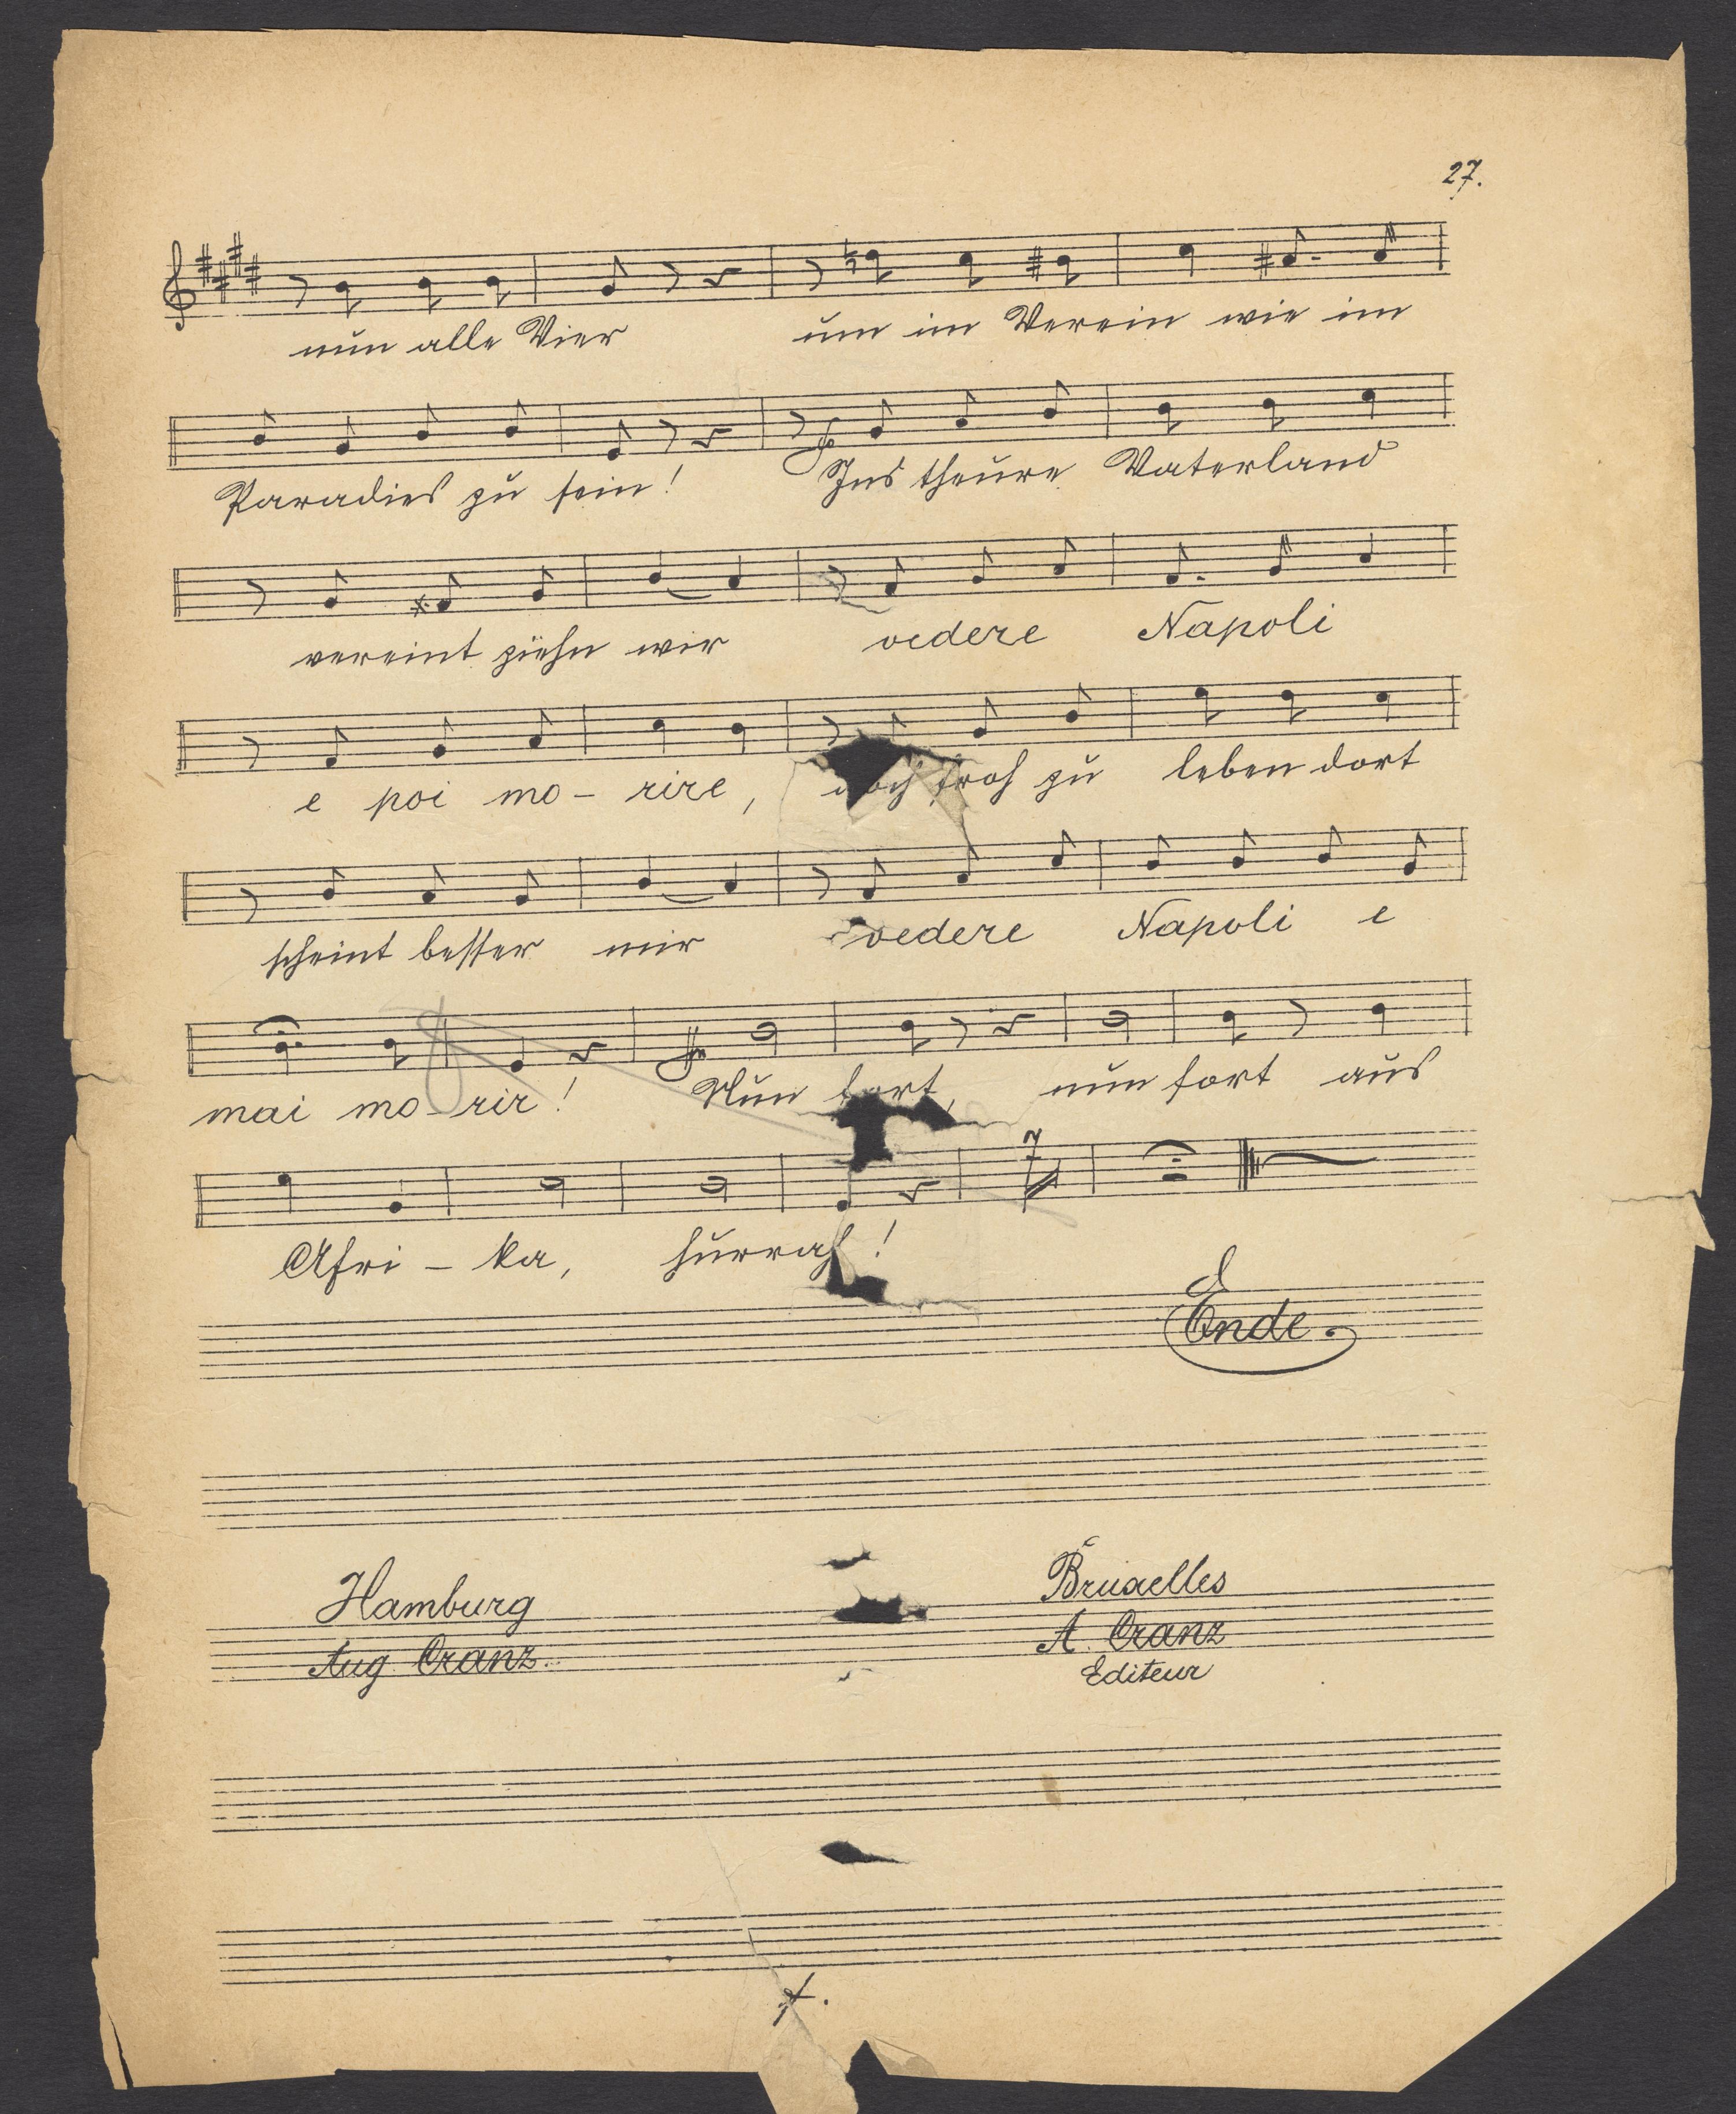 27.
nun alle Vier um im Verein wie im
Paradies zu sein! Ins theure Vaterland
vereint ziehn wir vedere Napoli
e poi mo- rire, doch froh zu leben dort
scheint besser mir vedere Napoli e
mai mo-rir! Nun fort, nun fort aus
Afri-ka, hurrah!
7
Ende.
Hamburg
Aug. Cranz.
Bruxelles
A. Cranz
Editeur